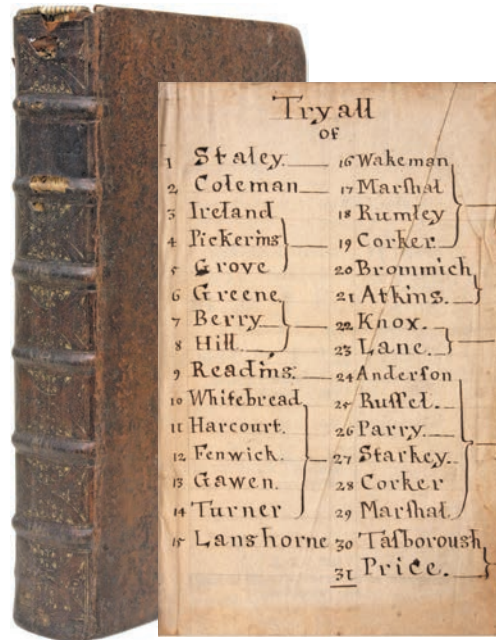 Tryall
of
1 Staley.
2 Coleman
3 Ireland
4 Pickering
5 Grove
6 Greene
7 Berry
8 Hill.
9 Reading:
10 Whitebread
11 Harcourt.
12 Fenwick.
13 Gawen.
14 Turner
15 Langhorne
16 Wakeman
17 Marshal
18 Rumley
19 Corker
20 Brommich
21 Atkins.
22 Knox.
23 Lane.
24 Anderson
25 Russel.
26 Parry
27 Starkey.
28 Corker
29 Marshal
30 Tasborough
31 Price.